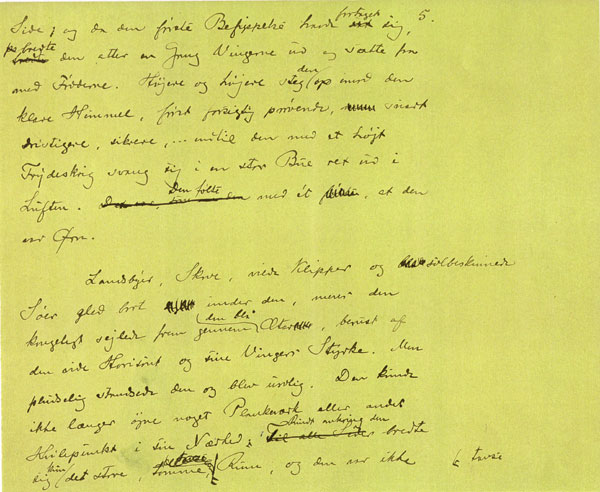 5.
Side; og da den første Befippelse havde fortaget sig,
bredte den efter en Gang Vingerne ud og satte fra
med Fødderne. Højere og højere steg den op mod den
klare Himmel, først forsigtig prøvende, snart
dristigere, sikrere, ... indtil den med et højt
Frydeskrig svang sig i en stor Bue ret ud i
Luften. Den følte med ét, at den
var Ørn.
Landsbyer, Skove, vilde Klipper og solbeskinnede
Søer gled bort under den, mens den
kongeligt sejlede frem gennem den blå Æter, berust af
den vide Horisont og sine Vingers Styrke. Men
pludselig standsede den og blev urolig. Den kunde
ikke længer øjne noget Plankeværk eller andet
Hvilepunkt i sin Nærhed; Rundt omkring den bredte
sig kun det store, tomme, Rum, og den var ikke